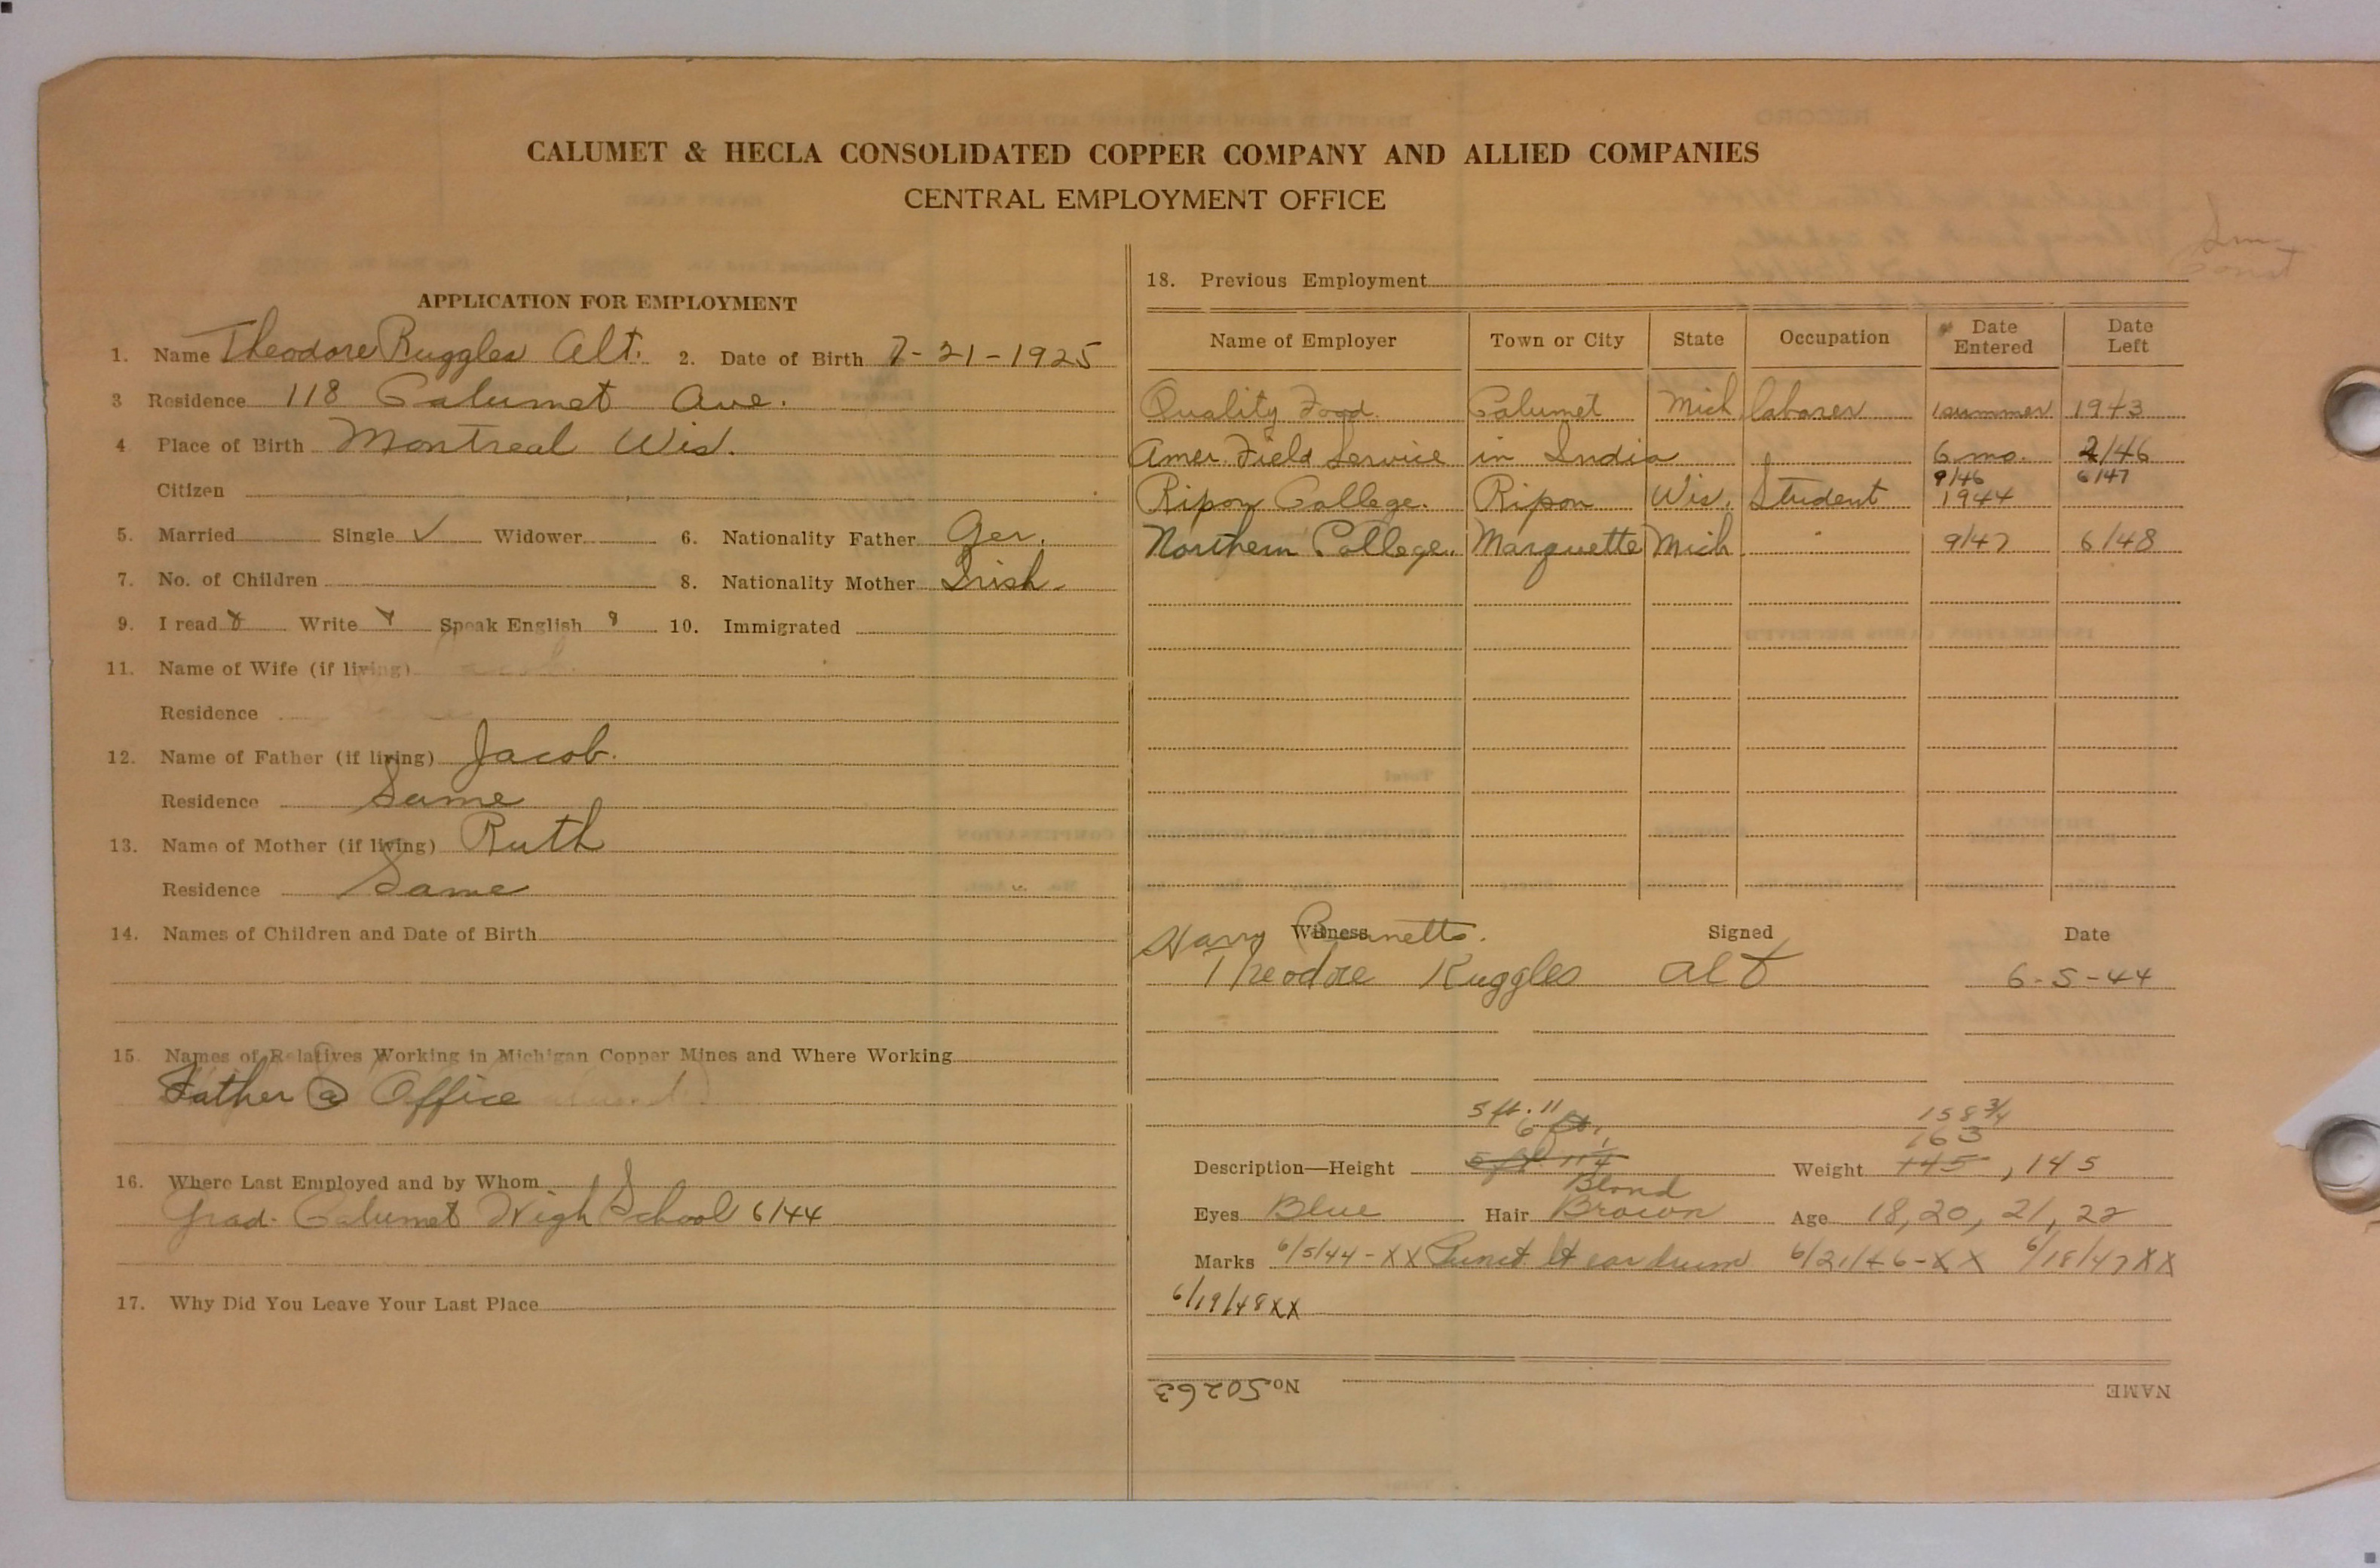 CALUMET & HECLA CONSOLIDATED COPPER COMPANY AND ALLIED COMPANIES
CENTRAL EMPLOYMENT OFFICE
APPLICATION FOR EMPLOYMENT
1. Name Theodore Ruggles Alt. 2. Date of Birth 7-21-1925
3 Residence 118 Calumet Ave.
4 Place of Birth Montreal Wis.
Citizen
5. Married Single ✓ Widower 6. Nationality Father Ger.
7. No. of Children 8. Nationality Mother Irish.
9. I read Write Speak English 10. Immigrated
11. Name of Wife (if living)
Residence
12. Name of Father (if living) Jacob.
Residence Same
13. Name of Mother (if living) Ruth
Residence Same
14. Names of Children and Date of Birth
15. Names of Relatives Working in Michigan Copper Mines and Where Working
Father @ Office
16. Where Last Employed and by Whom
Grad. Calumet High School 6/44
17. Why Did You Leave Your Last Place
18. Previous Employment
Name of Employer Town or City State Occupation Date Entered Date Left
Quality Food. Calumet Mich laborer 1 summer 1943
Amer. Field Service in India 6 mo. 2/46
9/46 6/47
Ripon College. Ripon Wis. Student 1944
Northern College. Marquette Mich. " 9/47 6/48
Harry Witness Signed Date
Theodore Ruggles Alt 6-5-44
5 ft. 11 158 3/4
6 ft. 163
Description—Height 5 ft 11 1/4 Weight 145, 145
Blond
Eyes Blue Hair Brown Age 18, 20, 21, 22
Marks 6/5/44-XX Punct. lt ear drum 6/21/46-XX 6/18/47XX
6/19/48XX
No. 50263 NAME